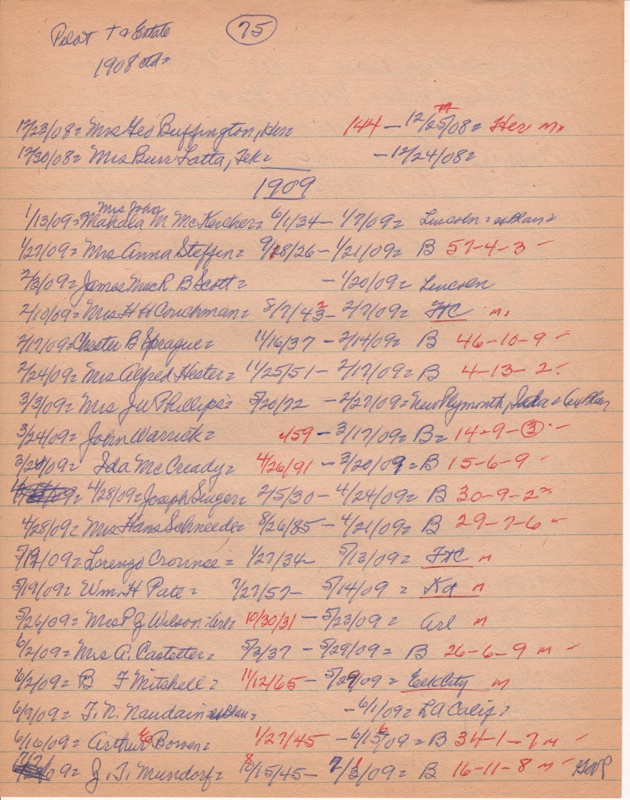 Pilot + a Estate (75)
1908 ctd=
12/23/08= Mrs Geo Buffington, Her= 144 - 12/25/08= Her m
12/30/08= Mrs Burr Latta, Tek= - 12/24/08=
1909
Mrs John
1/13/09= M McKercher= 6/1/34 - 1/7/09= Lincoln=
1/27/09= Mrs Anna Steffen= 9/28/26 - 1/21/09= B 57-4-3 -
2/3/09= James Mack B Scott= - 1/20/09= Lincoln
2/10/09= Mrs H H Couchman= 8/7/43 - 2/7/09= FtC m.
2/17/09= Chester B Sprague= 11/16/37 - 2/14/09= B 46-10-9 -
2/24/09= Mrs Alfred Hester= 11/25/51 - 2/17/09= B 4-13-2 -
3/3/09= Mrs J W Phillips= 5/20/72 - 2/27/09= New Plymouth, Ida
3/24/09= John Warrick= 59 - 3/17/09= B= 14-9-(3) -
Ida McCready= 4/26/91 - 3/20/09= B 15-6-9 -
4/28/09= Joseph 2/5/30 - 4/24/09= B 30-9-2
4/28/09= Mrs Hans Schneede= 8/26/85 - 4/21/09= B 29-7-6
5/19/09= Lorenzo Crounse= 1/27/34 5/13/09= FtC m
5/19/09= Wm. H Pate= 7/27/57 - 5/14/09= Kd m
5/26/09= Mrs P J Wilson= 10/30/31 - 5/23/09= Arl m
6/2/09= Mrs A. Castetter= 5/2/37 - 5/29/09= B 26-6-9 m -
6/2/09= B F Mitchell= 11/12/65 - 5/29/09= Elk City m
6/9/09= T. N. Naudain - 6/1/09= LA Calif?
6/16/09= Arthur Bowen= 1/27/45 - 6/15/09= B 34-1-7 m -
J. T. Mundorf= 8/15/45 - 7/3/09= B 16-11-8 m -